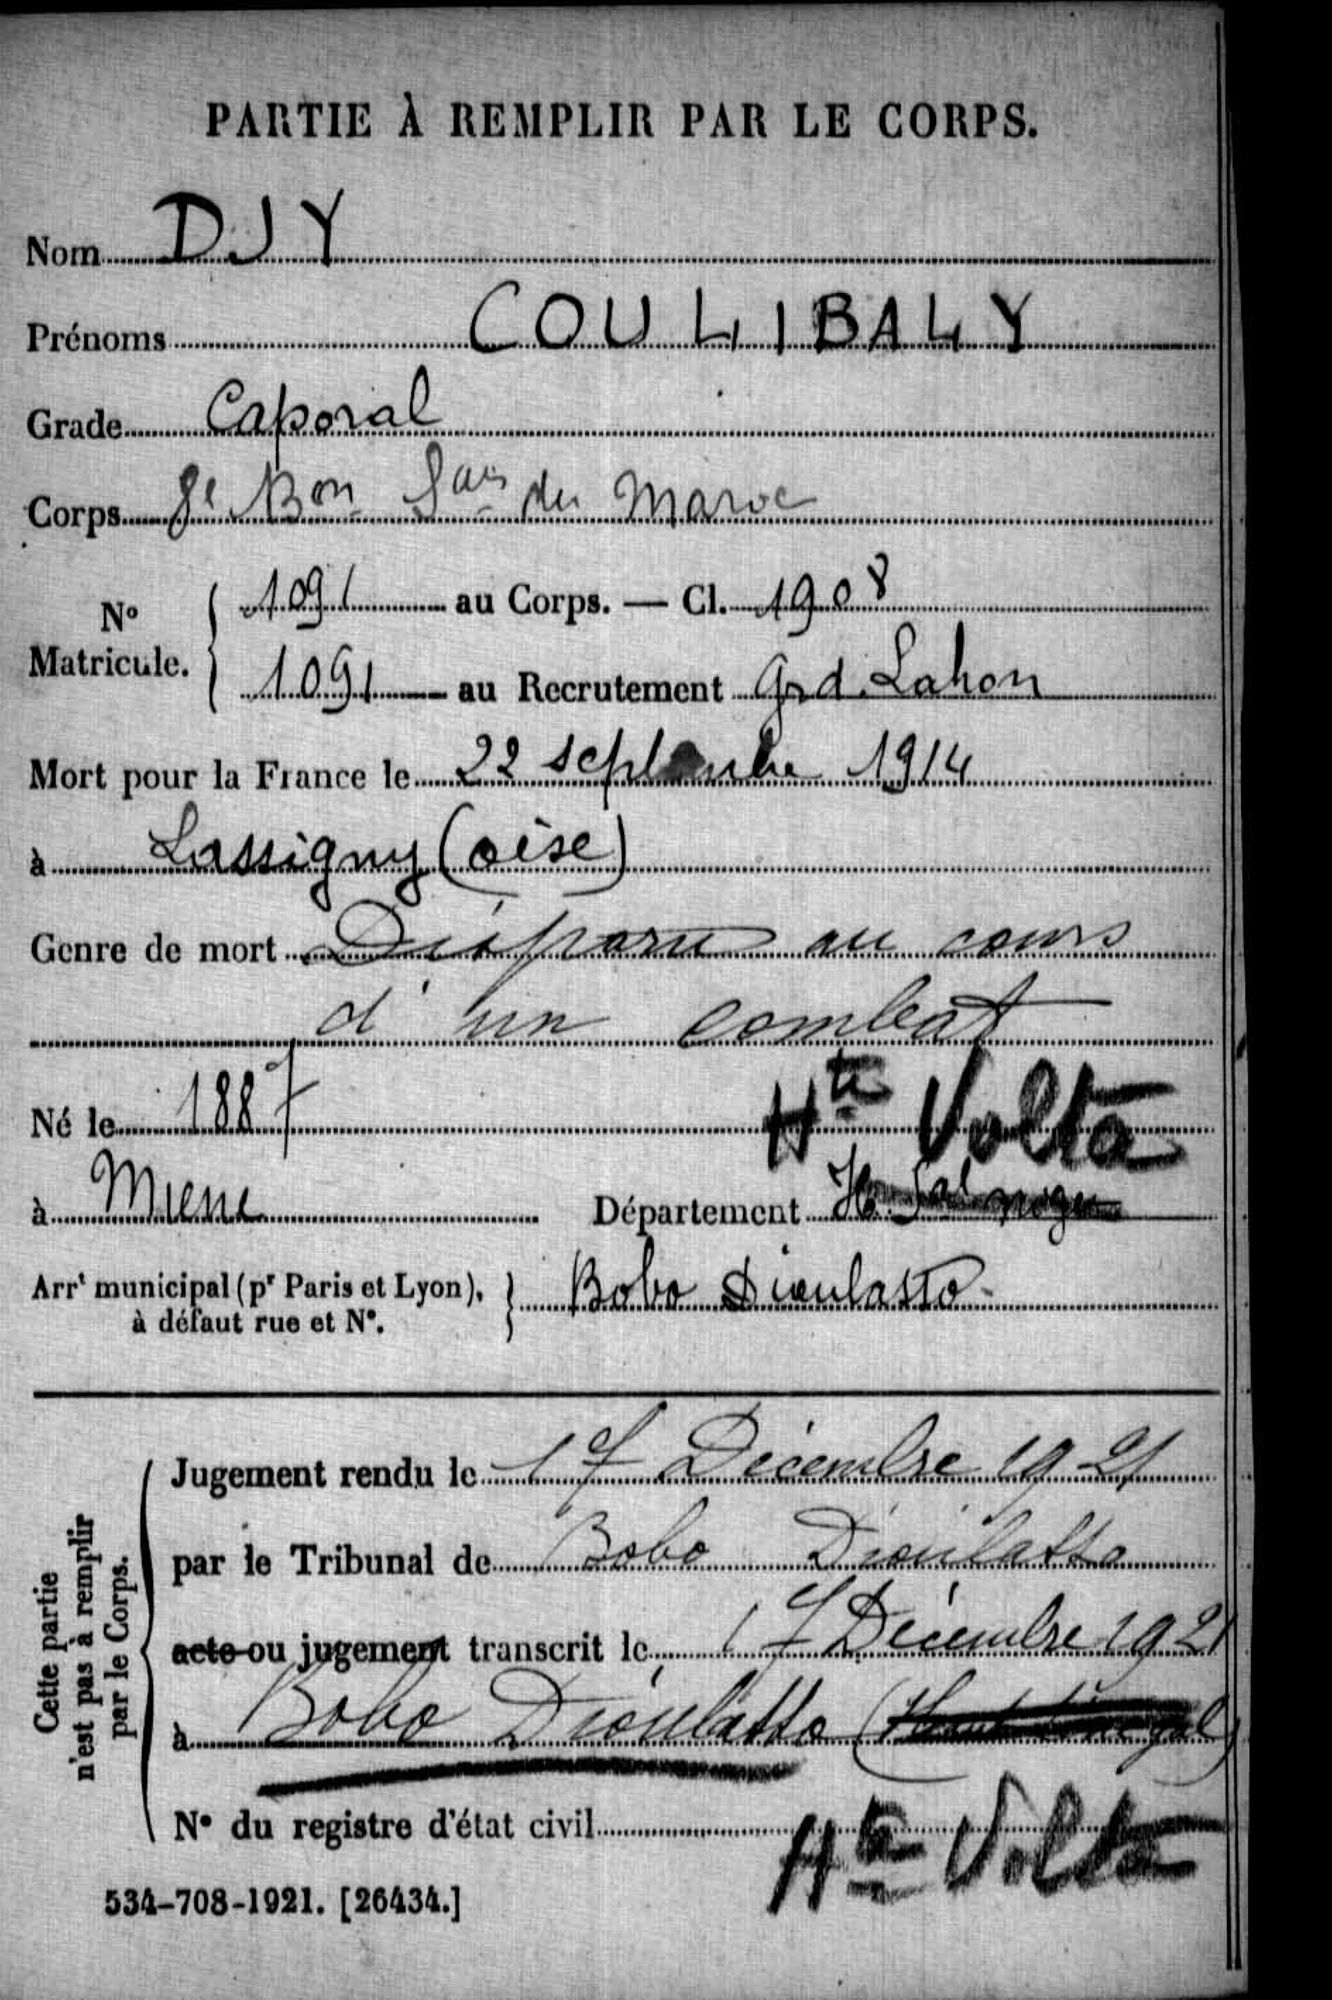 PARTIE À REMPLIR PAR LE CORPS.
Nom DJY
Prénoms COULIBALY
Grade Caporal
Corps 8e Bon Sais du Maroc
No Matricule. { 1091 au Corps. — Cl. 1908
1091 au Recrutement Grd. Lahon
Mort pour la France le 22 septembre 1914
à Lassigny (oise)
Genre de mort Disparu au cours
d'un combat
Né le 1887 Hte Volta
à Miene Département H. Sal niger
Arrt municipal (pr Paris et Lyon), à défaut rue et No. } Bobo Dioulasso
Cette partie n'est pas à remplir par le Corps.
Jugement rendu le 17 Décembre 1921
par le Tribunal de Bobo Dioulasso
acte ou jugement transcrit le 17 Décembre 1921
à Bobo Dioulasso (Haut Sénégal)
No du registre d'état civil Hte Volta
534-708-1921. [26434.]